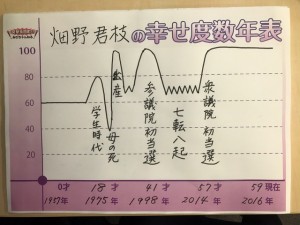 畑野君枝の幸せ度数年表
100
80
60
40
20
学生時代
母の死
出産
参議院 初当選
七転八起
衆議院 初当選
0才 18才 41才 57才 59現在
1957年 1975年 1998年 2014年 2016年